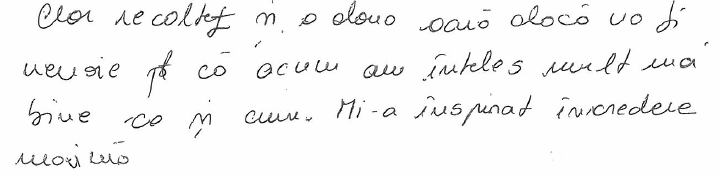 recoltez și a doua oară dacă va fi
nevoie pt că acum am înteles mult mai
bine ce și cum. Mi-a inspirat încredere
maximă